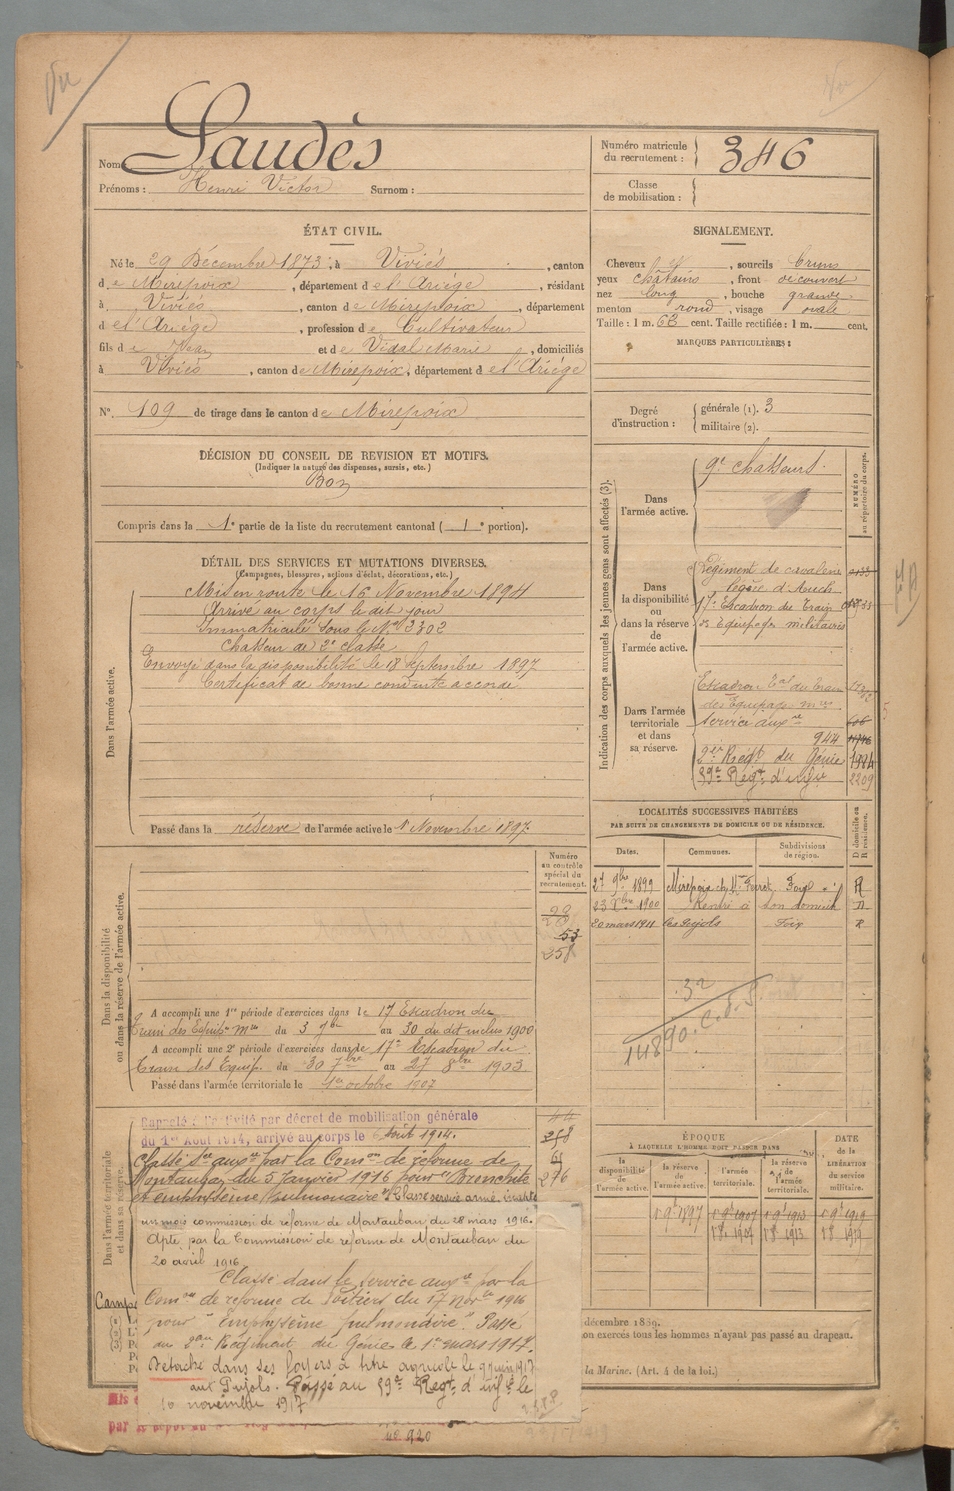 Vu
Nom: Laudès
Prénoms : Henri Victor Surnom :
Numéro matricule
du recrutement : 346
Classe
de mobilisation :
ÉTAT CIVIL.
Né le 29 Décembre 1873, à Viviès, canton
de Mirepoix, département de l'Ariège, résidant
à Viviès, canton de Mirepoix, département
de l'Ariège, profession de Cultivateur
fils de Jean et de Vidal Marie, domiciliés
à Viviès, canton de Mirepoix, département de l'Ariège
N° 109 de tirage dans le canton de Mirepoix
SIGNALEMENT.
Cheveux , sourcils bruns
yeux chatains, front découvert
nez long, bouche grande
menton rond, visage ovale
Taille : 1 m. 62 cent. Taille rectifiée : 1 m. cent.
MARQUES PARTICULIÈRES :
Degré
d'instruction :
générale (1). 3
militaire (2).
DÉCISION DU CONSEIL DE REVISION ET MOTIFS.
(Indiquer la nature des dispenses, sursis, etc.)
Bon
Compris dans la 1e partie de la liste du recrutement cantonal ( 1 e portion).
DÉTAIL DES SERVICES ET MUTATIONS DIVERSES.
(Campagnes, blessures, actions d'éclat, décorations, etc.)
Dans l'armée active.
Mis en route le 16 Novembre 1894
Arrivé au corps le dit jour
Immatriculé sous le N° 2302
Chasseur de 2e classe
Envoyé dans la disponibilité le 18 septembre 1897
Certificat de bonne conduite accordé
Passé dans la réserve de l'armée active le 1 Novembre 1897.
Indication des corps auxquels les jeunes gens sont affectés (3).
NUMÉRO
au répertoire du corps.
Dans
l'armée active.
9e chasseurs.
Dans
la disponibilité
ou
dans la réserve
de
l'armée active.
Régiment de cavalerie
légère d'Auch
17e Escadron du Train
des Equipages militaires
Dans l'armée
territoriale
et dans
sa réserve.
Escadron Tal du Train
des Equipages mres
Service auxre
944
2e Regt du Génie 1984
89e Regt d'Infie 2209
LOCALITÉS SUCCESSIVES HABITÉES
PAR SUITE DE CHANGEMENTS DE DOMICILE OU DE RÉSIDENCE.
D domicile ou
R résidence.
Dates. Communes. Subdivisions
de région.
27 9bre 1899 Mirepoix Foix R
23 Xbre 1900 Rentré à son domicile
20 mars 1911 les Pujols Foix R
32
14890. C.d.S.
Numéro
au contrôle
spécial du
recrutement.
53
258
Dans la disponibilité
ou dans la réserve de l'armée active.
A accompli une 1re période d'exercices dans le 17 Escadron du
Train des Equip. mres du 3 9bre au 30 du dit inclus 1900
A accompli une 2e période d'exercices dans le 17e Escadron du
Train des Equip. du 30 7bre au 27 8bre 1903
Passé dans l'armée territoriale le 1er octobre 1907
Dans l'armée territoriale
et dans sa réserve.
Rappelé à l'activité par décret de mobilisation générale
du 1er Août 1914, arrivé au corps le 6 Août 1914.
Classé Sce auxre par la Comon de réforme de
Montauban du 5 Janvier 1916 pour "Bronchite
et emphysème pulmonaire". Classé service armé inapte
un mois commission de réforme de Montauban du 28 mars 1916.
Apte par la Commission de réforme de Montauban du
20 avril 1916
Classé dans le service auxre par la
Comon de réforme de Poitiers du 17 Nov bre 1916
pour "Emphysème pulmonaire". Passé
au 2me Régiment du Génie le 1er mars 1917.
Détaché dans ses foyers à titre agricole le 9 juin 1917
aux Pujols. Passé au 89e Regt d'Infie le
10 novembre 1917
258
276
ÉPOQUE
À LAQUELLE L'HOMME DOIT PASSER DANS
DATE
DE LA
LIBÉRATION
du service
militaire.
la
disponibilité
de l'armée active.
la réserve
de
l'armée active.
l'armée
territoriale.
la réserve
de
l'armée
territoriale.
1 9bre 1897 1 9bre 1907 1 9bre 1913 1 9bre 1919
1 8 1907 1 8 1913 1 8 1919
Camp
décembre 1889.
on exercés tous les hommes n'ayant pas passé au drapeau.
la Marine. (Art. 4 de la loi.)
920